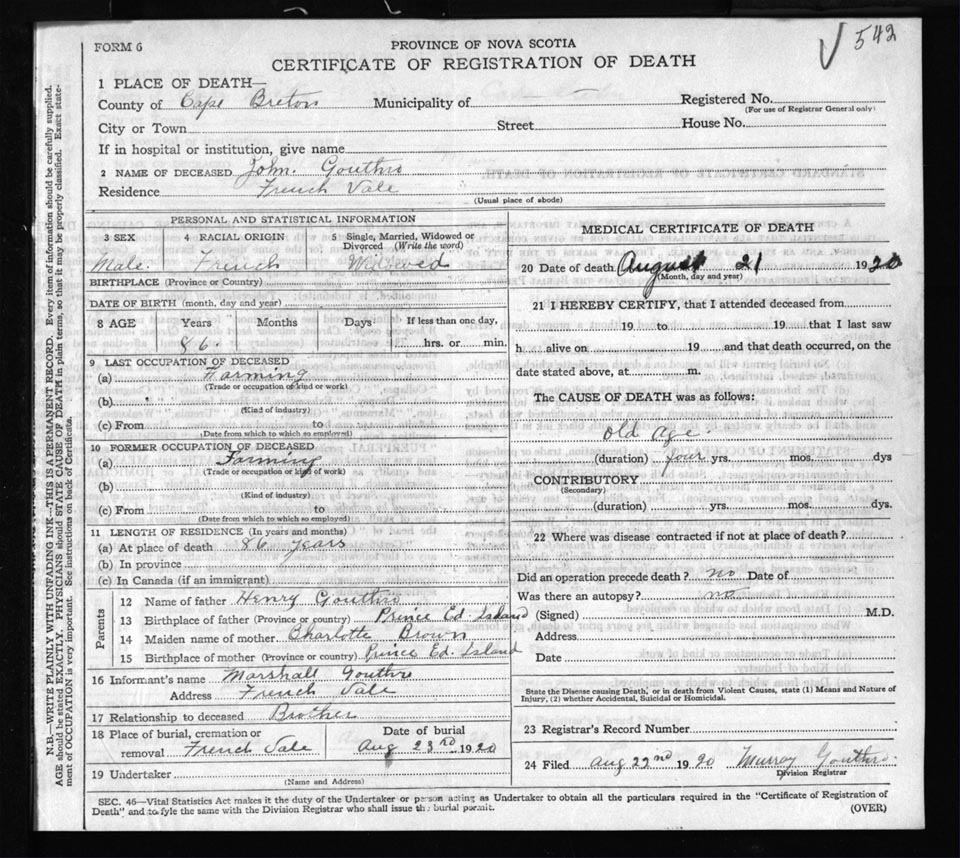 √ 542
FORM 6
PROVINCE OF NOVA SCOTIA
CERTIFICATE OF REGISTRATION OF DEATH
1 PLACE OF DEATH—
County of Cape Breton Municipality of Registered No.
(For use of Registrar General only)
City or Town Street House No.
If in hospital or institution, give name
2 NAME OF DECEASED John. Gouthro
Residence French Vale
(Usual place of abode)
PERSONAL AND STATISTICAL INFORMATION
3 SEX 4 RACIAL ORIGIN 5 Single, Married, Widowed or Divorced (Write the word)
Male. French Widowed
BIRTHPLACE (Province or Country)
DATE OF BIRTH (month, day and year)
8 AGE Years Months Days If less than one day,
86. hrs. or min.
9 LAST OCCUPATION OF DECEASED
(a) Farming
(Trade or occupation or kind of work)
(b)
(Kind of industry)
(c) From to
(Date from which to which so employed)
10 FORMER OCCUPATION OF DECEASED
(a) Farming
(Trade or occupation or kind of work)
(b)
(Kind of industry)
(c) From to
(Date from which to which so employed)
11 LENGTH OF RESIDENCE (In years and months)
(a) At place of death 86 years
(b) In province
(c) In Canada (if an immigrant)
Parents
12 Name of father Henry Gouthro
13 Birthplace of father (Province or country) Prince Ed. Island
14 Maiden name of mother Charlotte Brown
15 Birthplace of mother (Province or country) Prince Ed. Island
16 Informant's name Marshall Gouthro
Address French Vale
17 Relationship to deceased Brother
18 Place of burial, cremation or Date of burial
removal French Vale Aug 23rd 1920
19 Undertaker
(Name and Address)
MEDICAL CERTIFICATE OF DEATH
20 Date of death August 21 1920
(Month, day and year)
21 I HEREBY CERTIFY, that I attended deceased from
19 to 19 that I last saw
h alive on 19 and that death occurred, on the
date stated above, at m.
The CAUSE OF DEATH was as follows:
old age.
(duration) four yrs. mos. dys
CONTRIBUTORY
(Secondary)
(duration) yrs. mos. dys.
22 Where was disease contracted if not at place of death?
Did an operation precede death? no Date of
Was there an autopsy? no
(Signed) M.D.
Address
Date
State the Disease causing Death, or in death from Violent Causes, state (1) Means and Nature of
Injury, (2) whether Accidental, Suicidal or Homicidal.
23 Registrar's Record Number
24 Filed Aug 22nd 1920 Murray Gouthro.
Division Registrar
SEC. 46—Vital Statistics Act makes it the duty of the Undertaker or person acting as Undertaker to obtain all the particulars required in the "Certificate of Registration of
Death" and to fyle the same with the Division Registrar who shall issue the burial permit. (OVER)
N.B.—WRITE PLAINLY WITH UNFADING INK—THIS IS A PERMANENT RECORD. Every item of information should be carefully supplied.
AGE should be stated EXACTLY. PHYSICIANS should STATE CAUSE OF DEATH in plain terms, so that it may be properly classified. Exact state-
ment of OCCUPATION is very important. See instructions on back of Certificate.